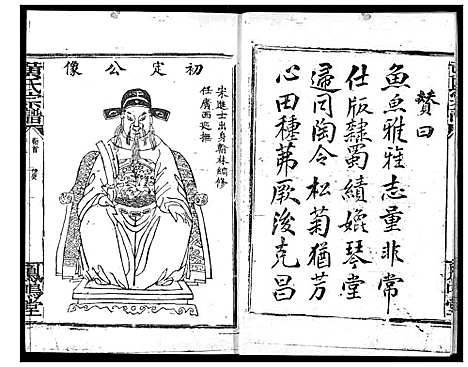 贊曰
魚魚雅雅志量非常
仕版隸蜀績媲琴堂
歸同陶令松菊猶芳
心田種茀厥後克昌
初定公像
宋進士出身翰林編修
任廣西巡撫
黃氏宗譜
卷首
鳳鳴堂